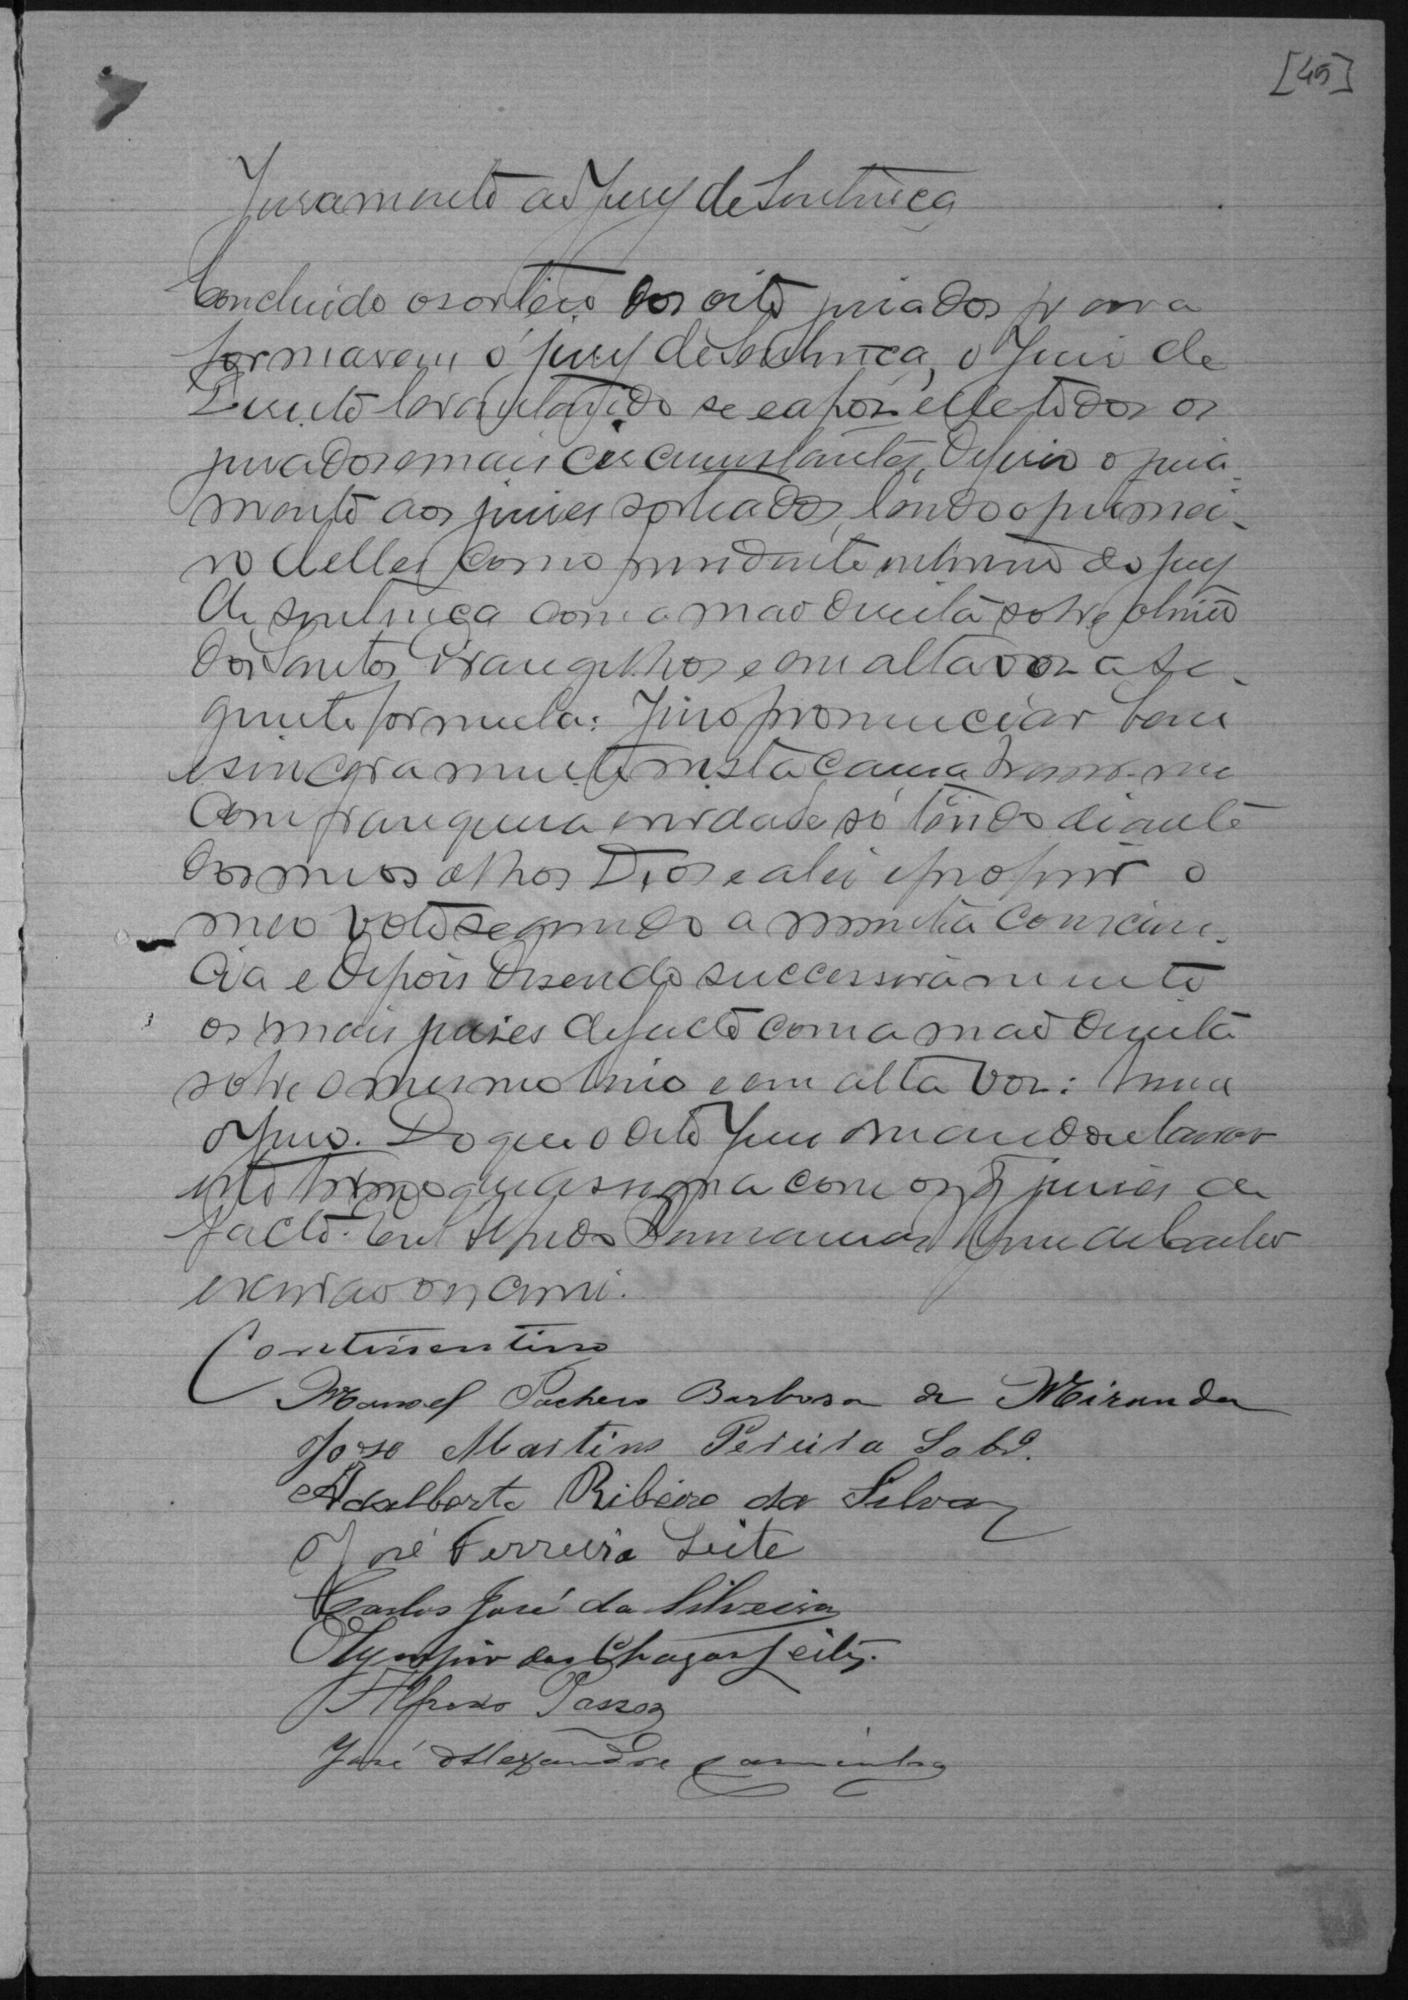 [45]
Juramento ao Jury de Sentença
Concluido o sorteio dos oito jurados para
formarem o jury de Sentença, o Juiz de
Direito levantando se e após elle todos os
jurados e mais circumstantes, deferio o jura-
mento aos juizes sorteados, lendo o primei-
ro delles como presidente interino do jury
de sentença com a mão direita sobre o livro
dos Santos Evangelhos e em alta voz a se-
guinte formula: Juro pronunciar bem
e sinceramente nesta causa haver-me
com franqueza e verdade só tendo diante
dos meus olhos Deos e a lei e proferir o
meo voto segundo a minha conscien-
cia e depois disendo successivamente
os mais juises de facto com a mão direita
sobre o mesmo livro e em alta voz: Assim
o juro. Do que o dito Juiz mandou lavrar
este termo que assigna com os juises de
facto. Eu
escrivão o escrevi.
Continentino
Manoel Pacheco Barbosa de Miranda
José Martins Pereira Sobº.
Adalberto Ribeiro da Silva
José Ferreira Leite
Carlos José da Silveira
Olympio das Chagas Leite.
Alfredo Passos
José Alexandre Caminha